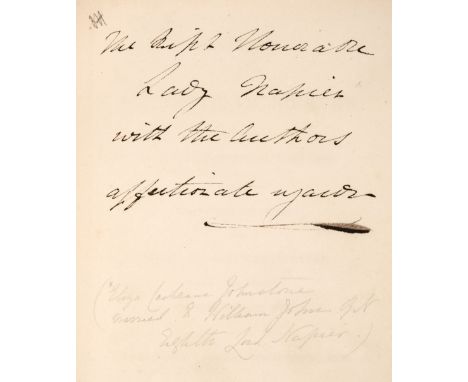 The Right Honorable
Lady Napier
with the Authors
affectionate regards
(Eliza Johnstone
married to William John 9th
Eighth Lord Napier.)